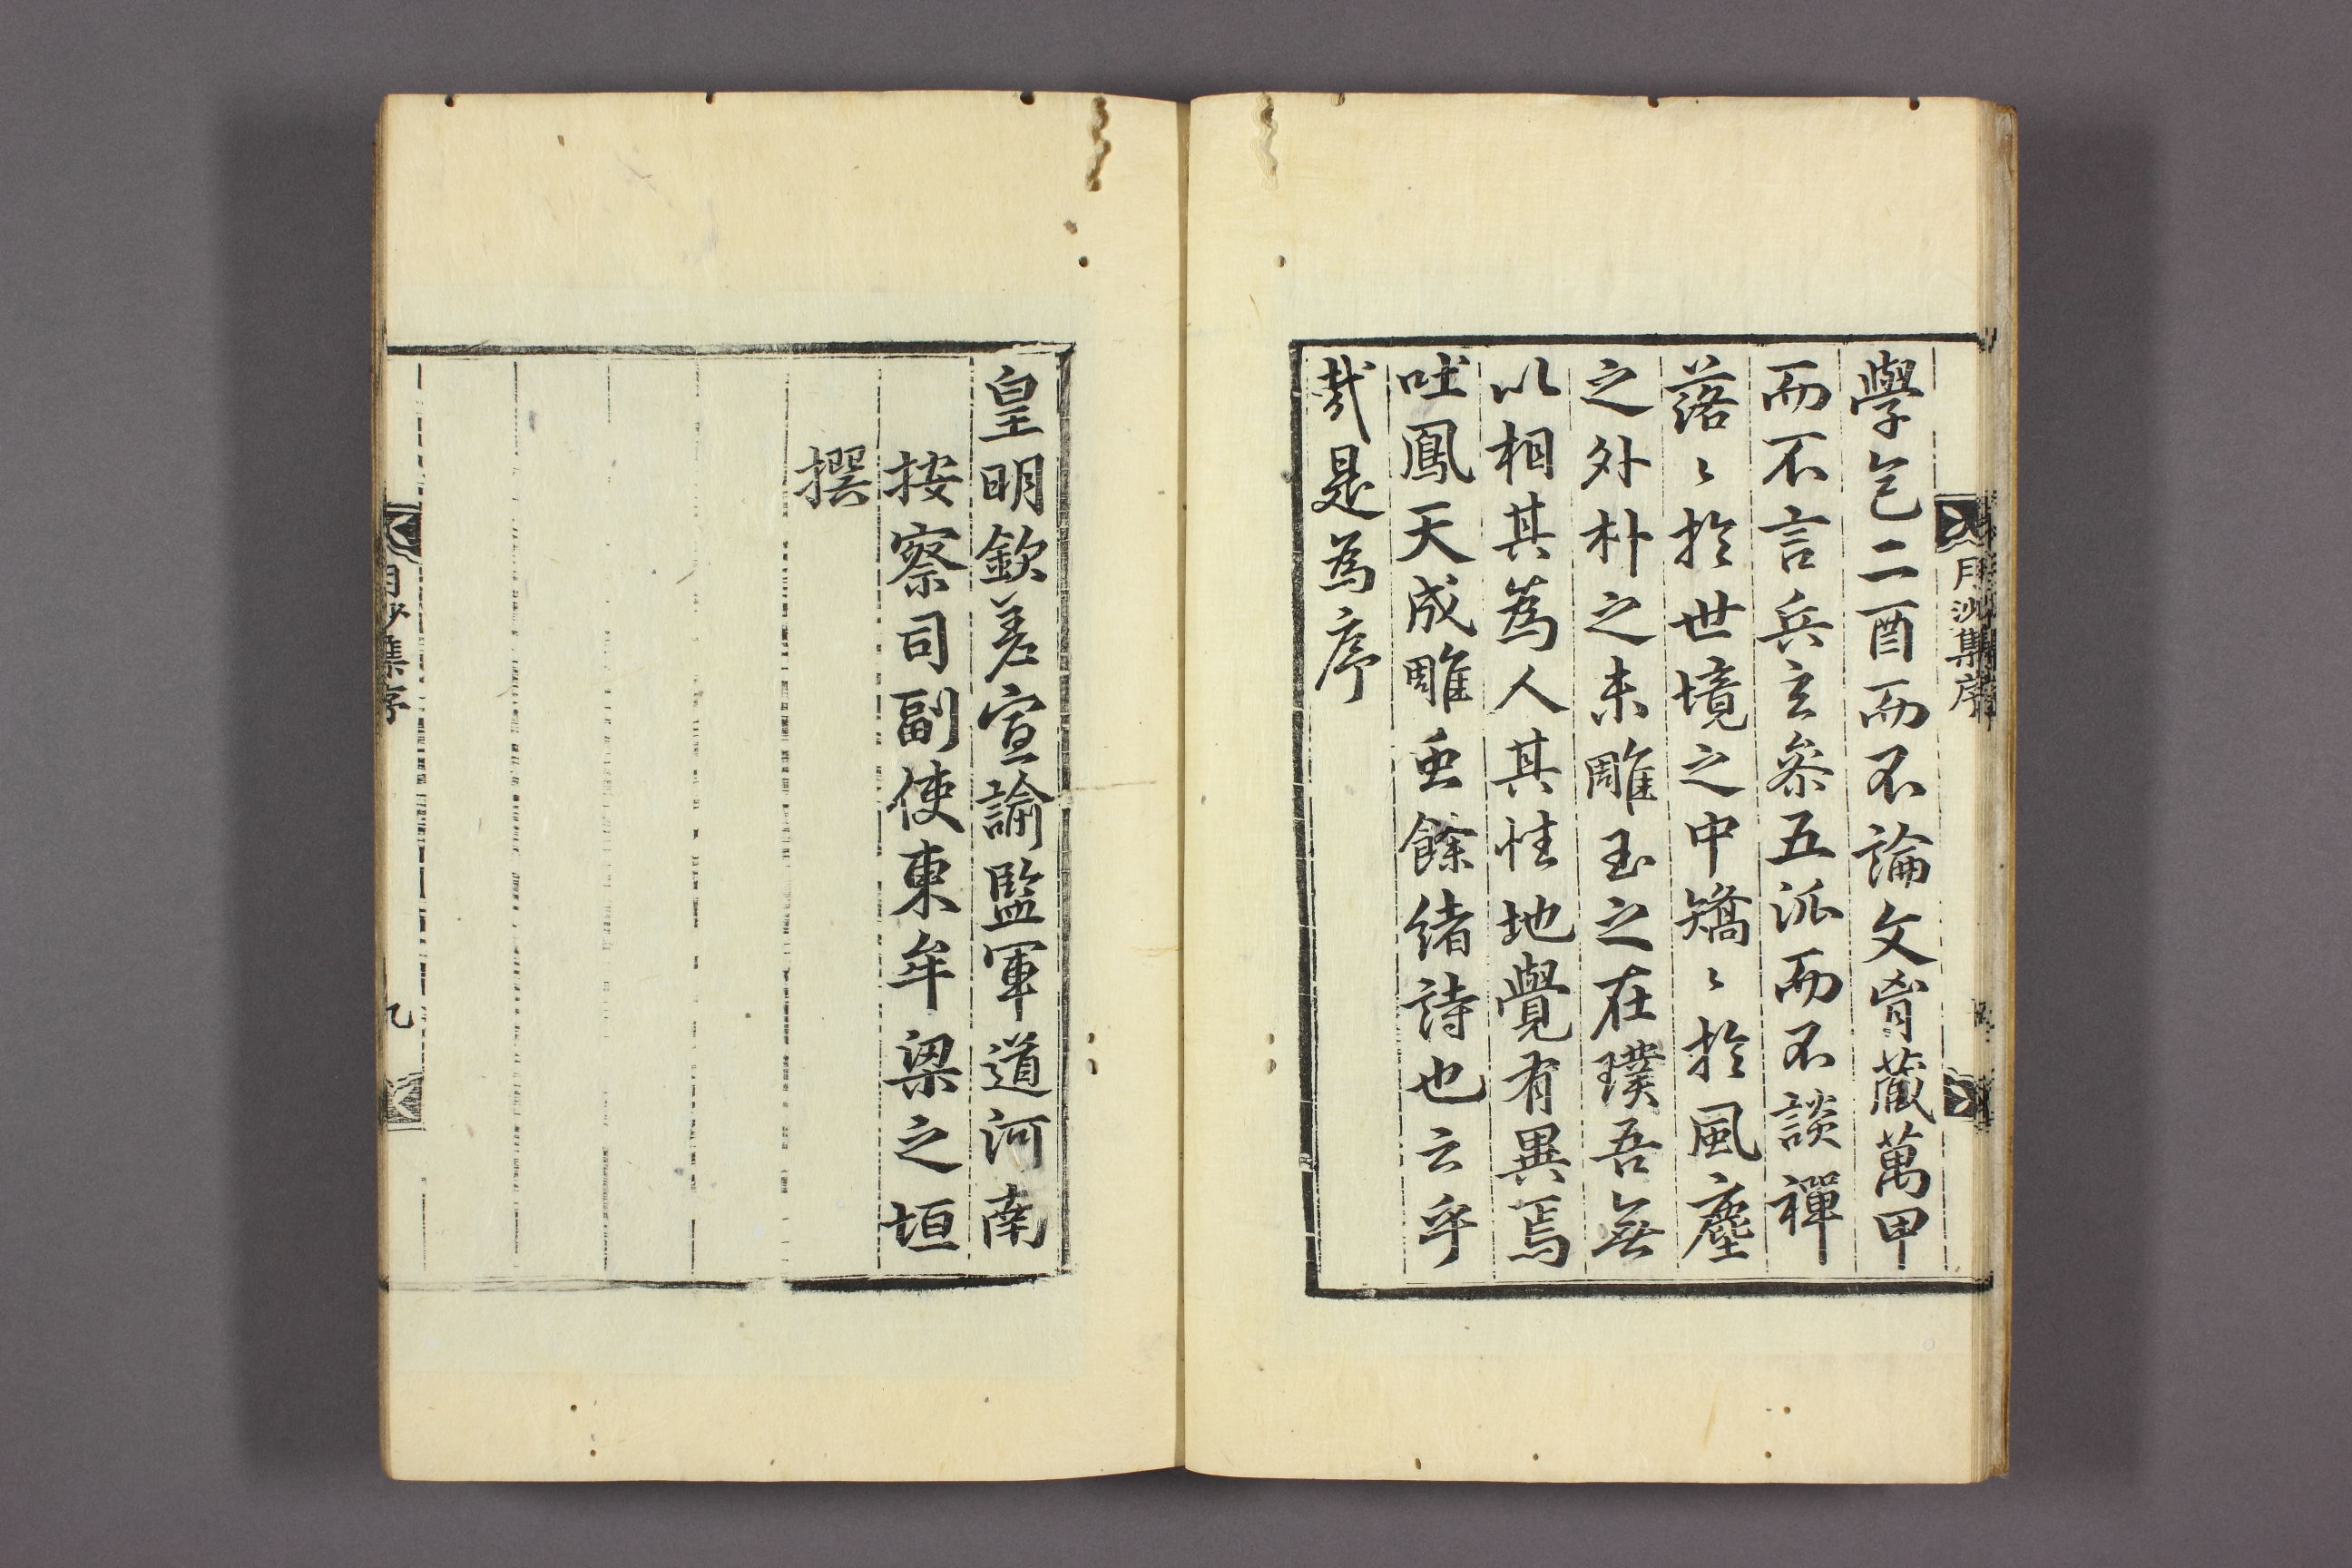 學包二酉而不論文胷藏萬甲
而不言兵玄參五派而不談禪
落〻於世境之中矯〻於風塵
之外朴之未雕玉之在璞吾無
以相其為人其性地覺有異焉
吐鳳天成雕虫餘緒詩也云乎
㢤是為序
月沙集序
皇明欽差宣諭監軍道河南
按察司副使東牟梁之垣
撰
月沙集序